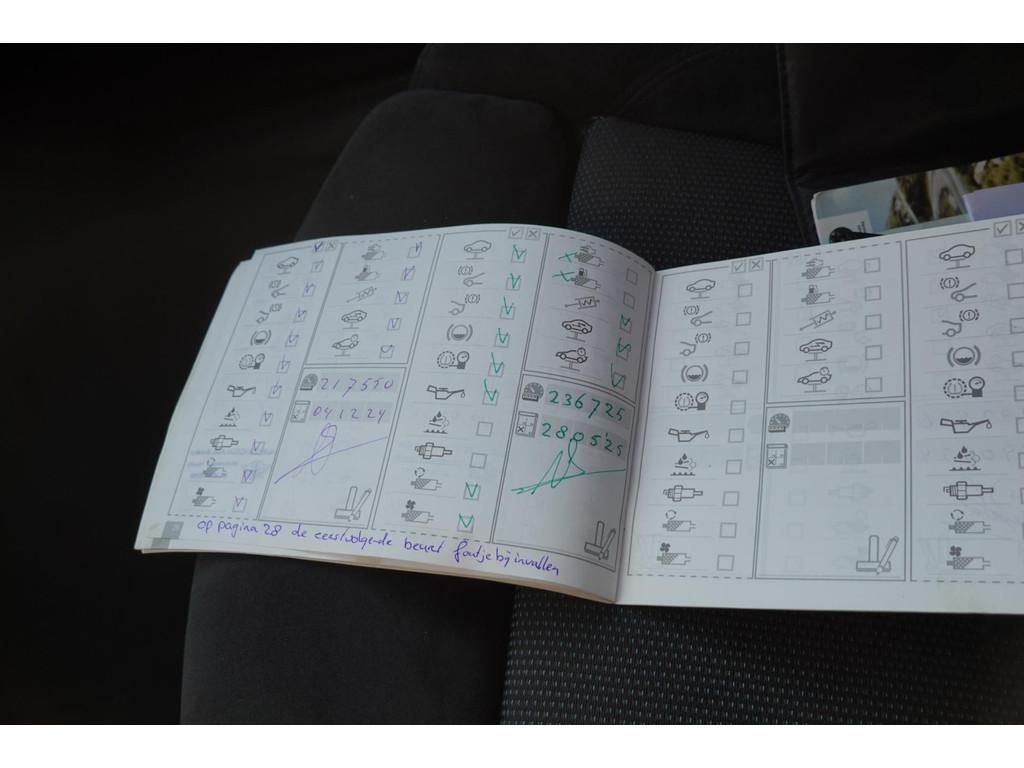 217550
041224
236725
280525
op pagina 28 de eerstvolgende beurt foutje bij invullen